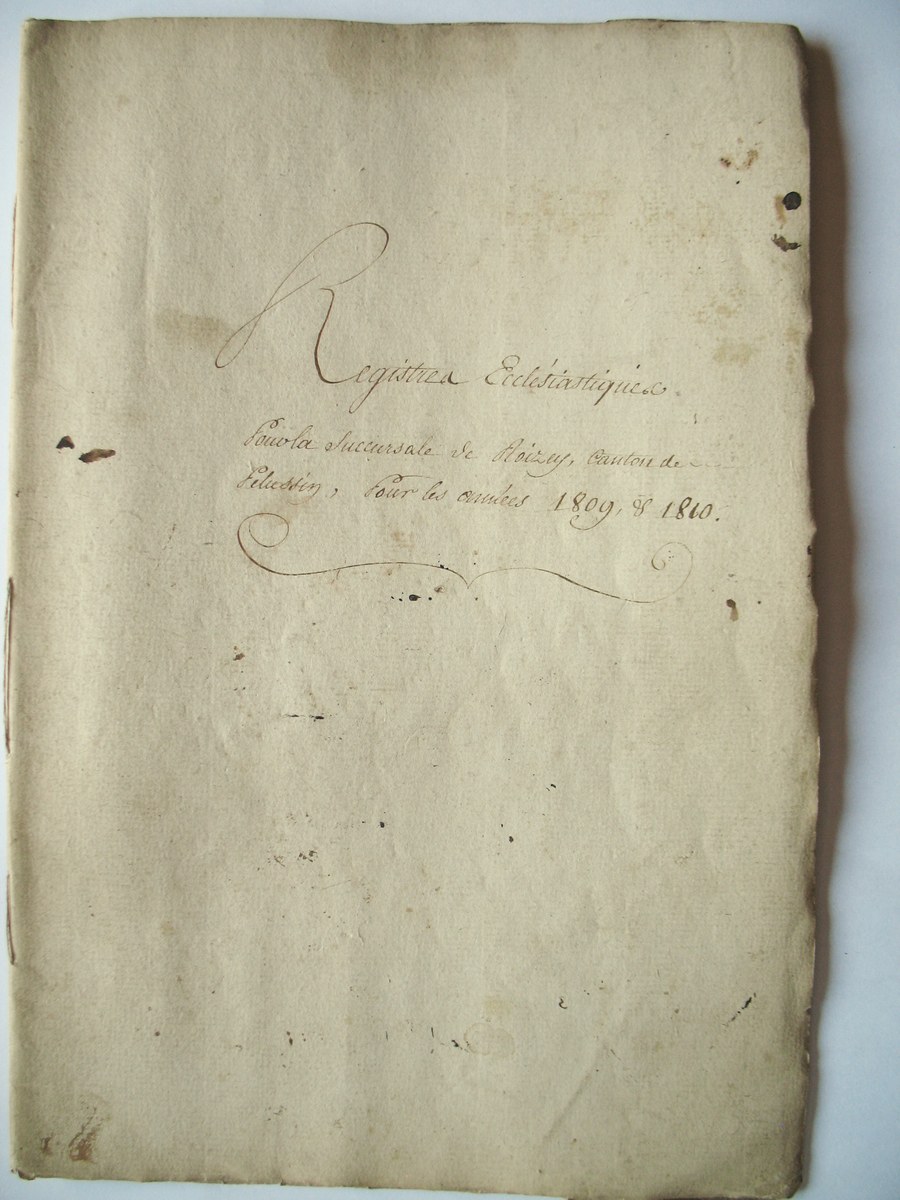 Registres Ecclésiastiques.
Pour la Succursale de Roizey, Canton de
Pelussin, Pour les années 1809, & 1810.